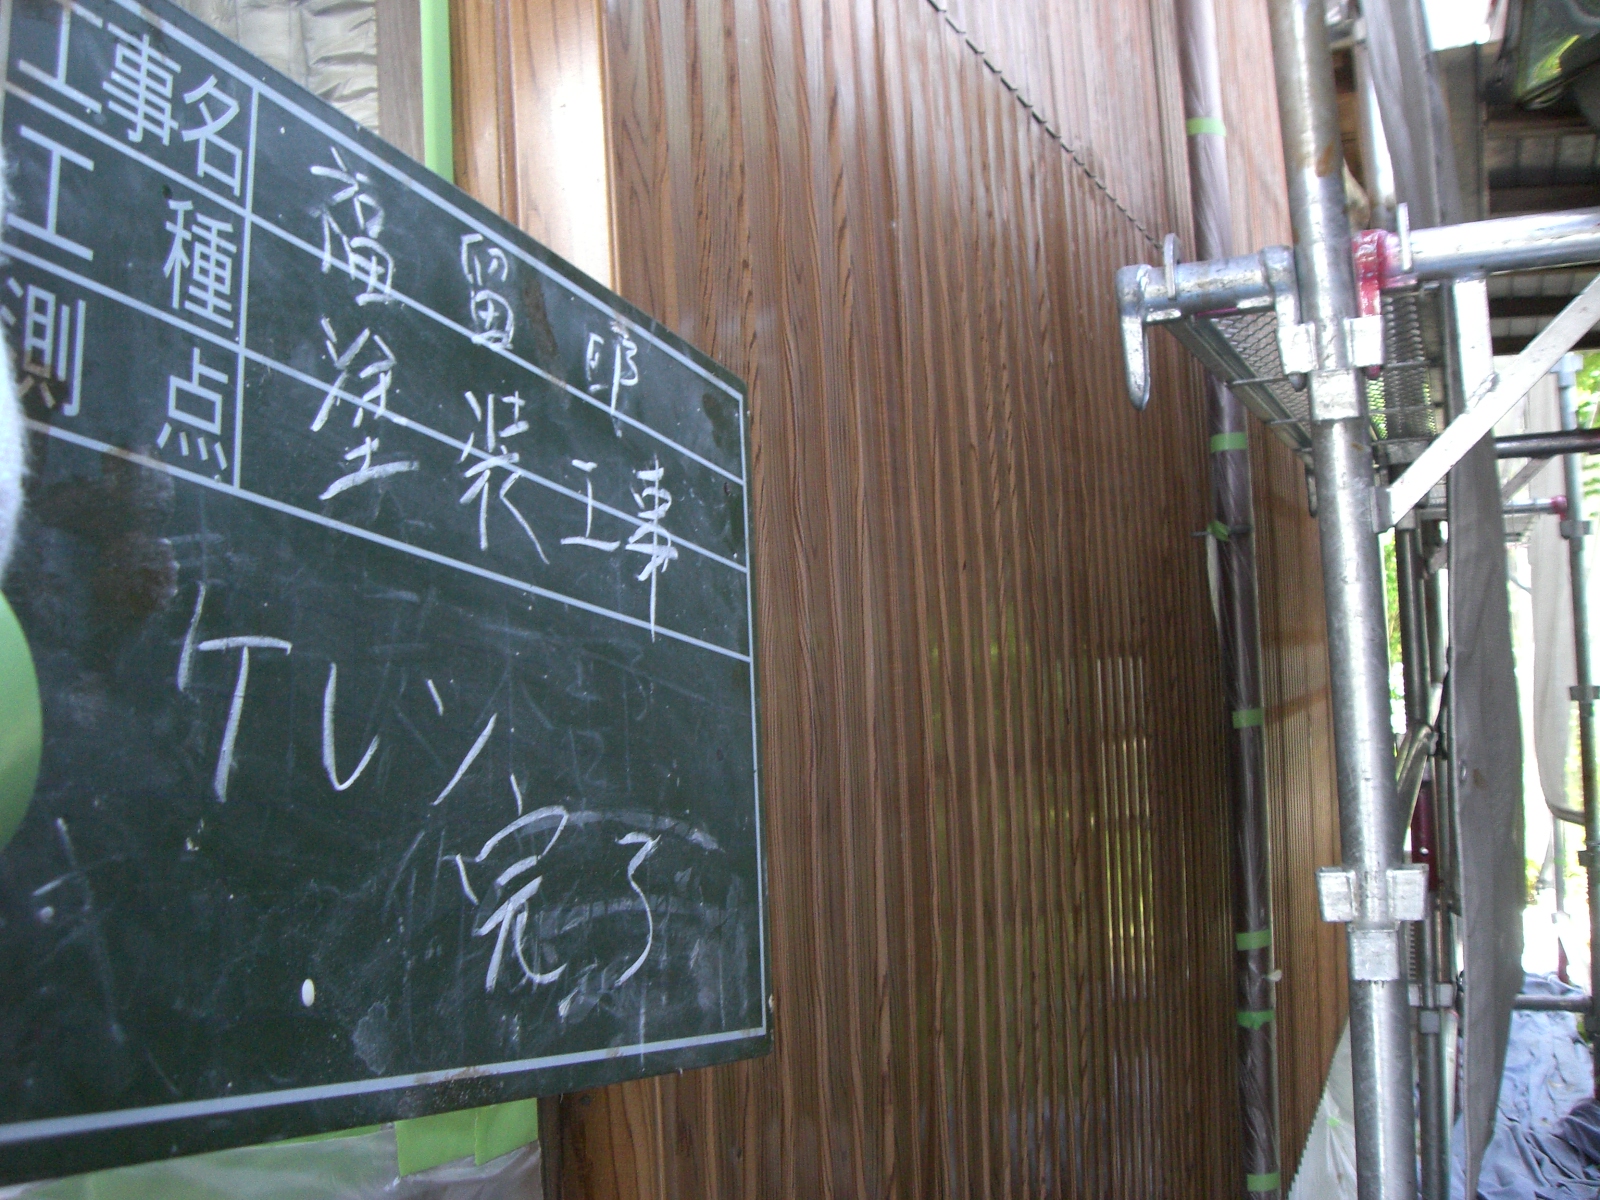 工事名 福留邸
工種 塗装工事
測点
ケレン
完了